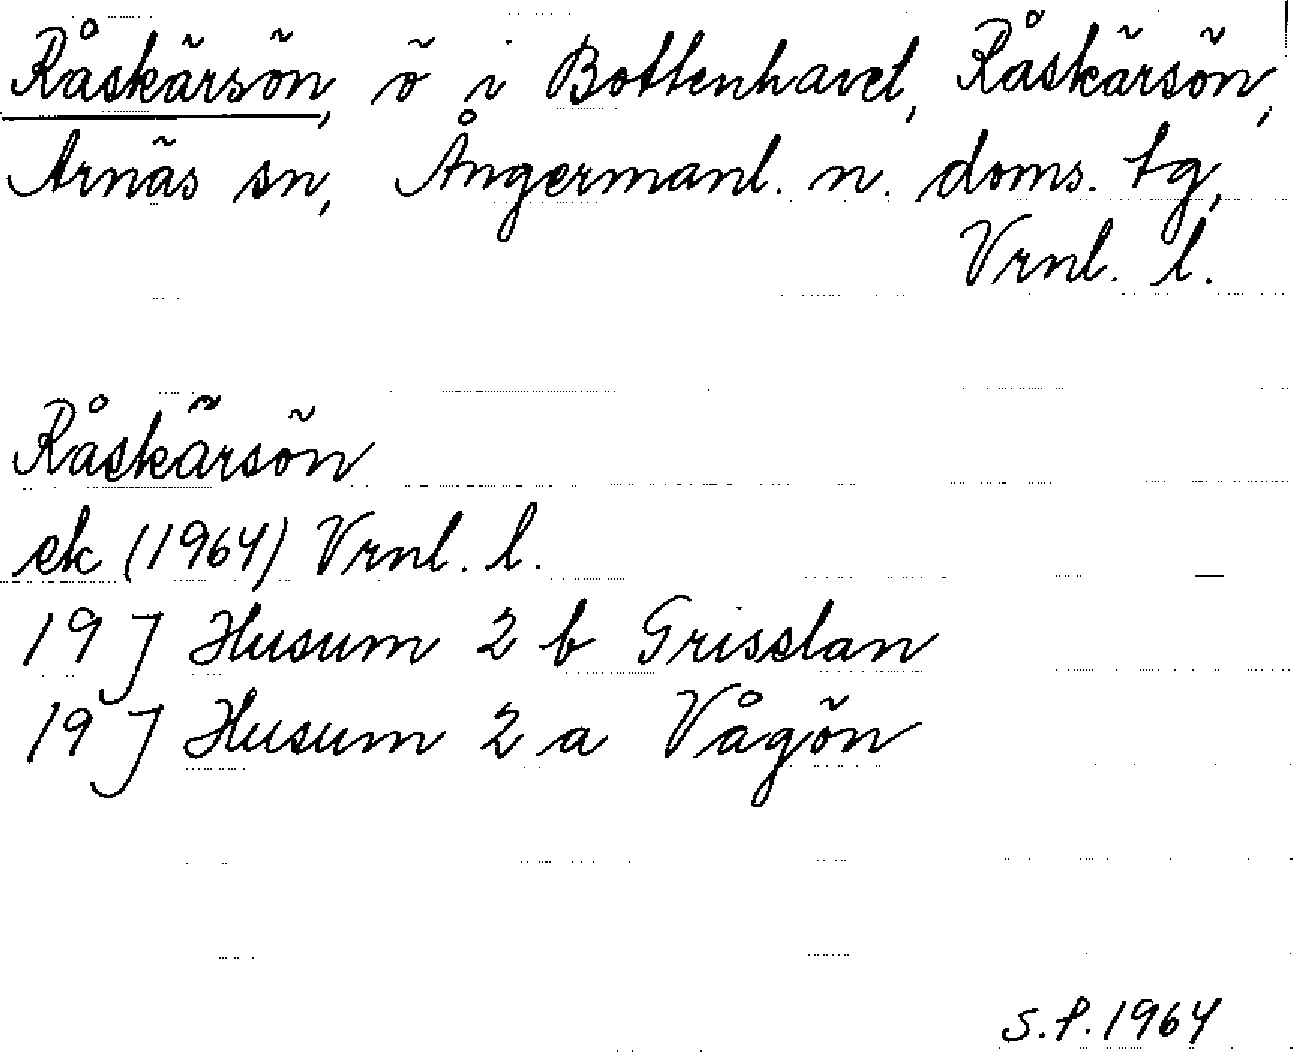 Råskärsön, ö i Bottenhavet, Råskärsön,
Arnäs sn, Ångermanl. n. doms. tg,
Vrnl. l.
Råskärsön
ek (1964) Vrnl. l.
19 J Husum 2 b Grisslan
19 J Husum 2 a Vågön
S.P. 1964